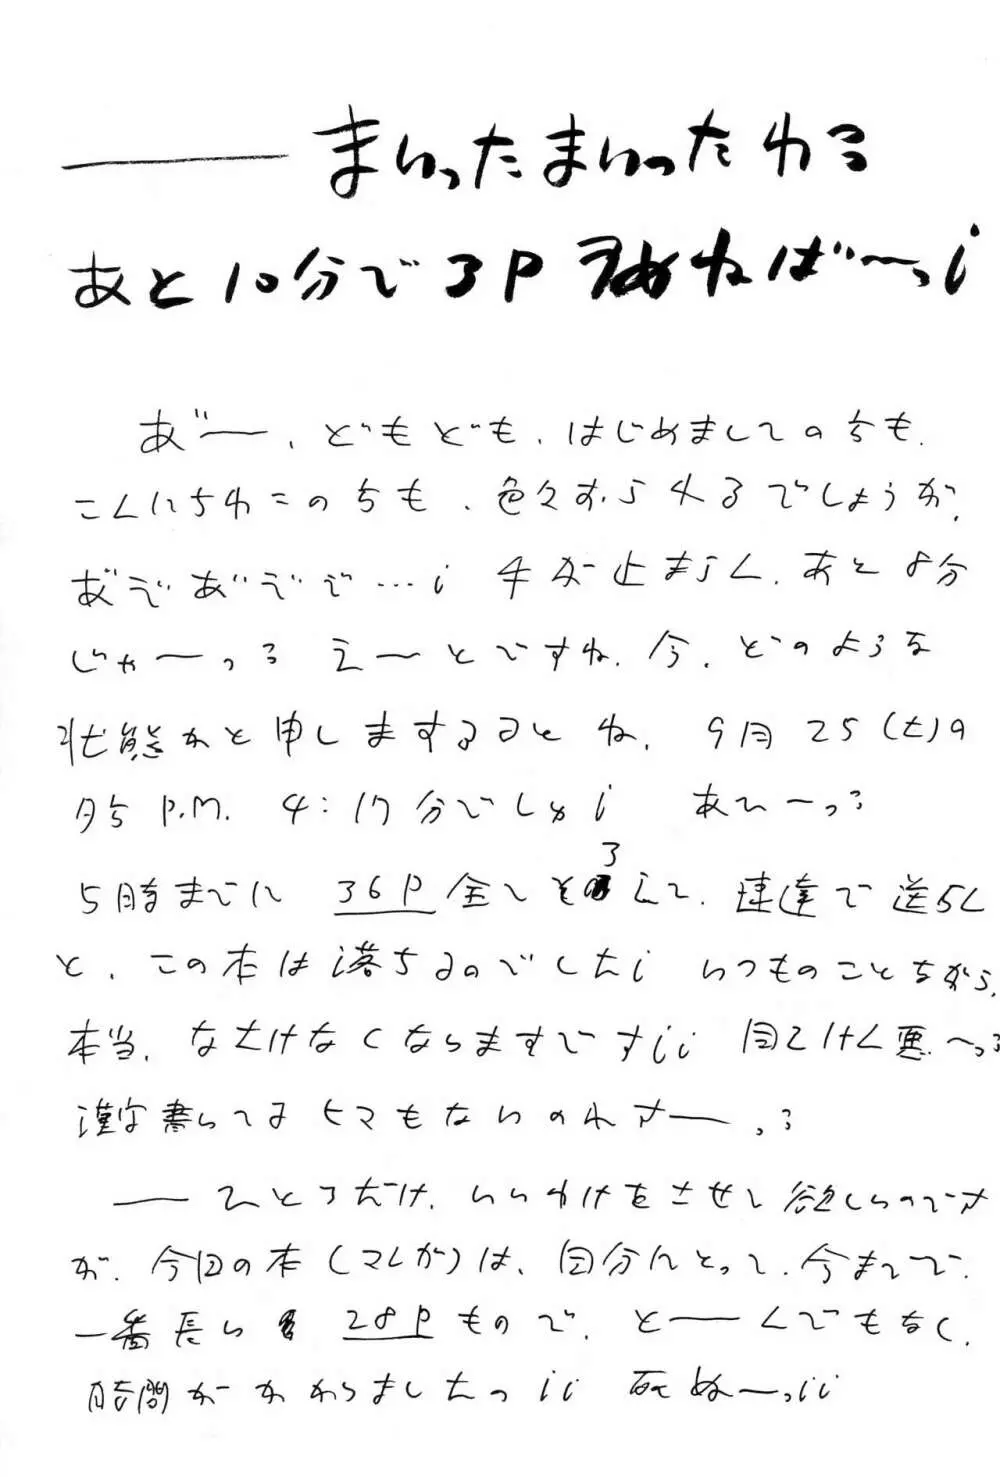 ―― まいったまいったわ;;
あと10分で3P 埋めねば〜っ!
あ゛――、どもども、はじめましてのちも、
こんにちわこのちも、色々おられるでしょうが、
あ゛ぞあ゛ぞぞ…! 手が止まらん、あと8分
じゃ――っ;; えーとですね、今、どのような
状態かと申しまするとね、9月25(土)の
時 P.M. 4:17分でしょ! あひーっ;;
5時までに 36P 全てそろえて、速達で送らん
と、この本は落ちるのでした! いつものことながら、
本当、なさけなくなりますです!! 自こけん悪〜っ;;
漢字書いてるヒマもないのわさ――っ;;
―― ひとつだけ、いいわけをさせて欲しいのです
が、今回の本(マンガ)は、自分にとって、今までで、
一番長い 28P もので、と――んでもなく、
時間がかかりましたっ!! 死ぬーっ!!